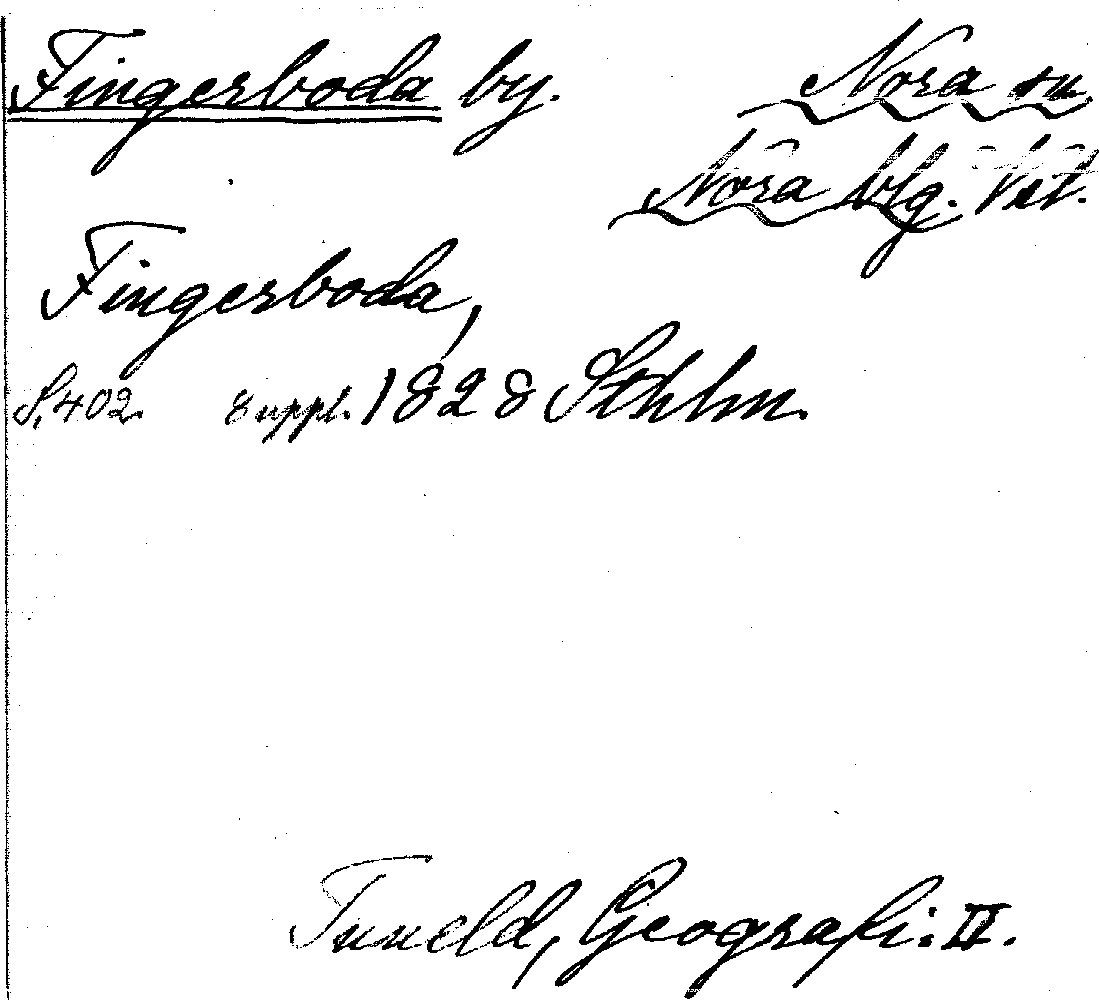 Fingerboda by. Nora sn
Nora blg. Vet.
Fingerboda,
S. 402. suppl. 1828 Sthlm.
Tuneld, Geografi: II.